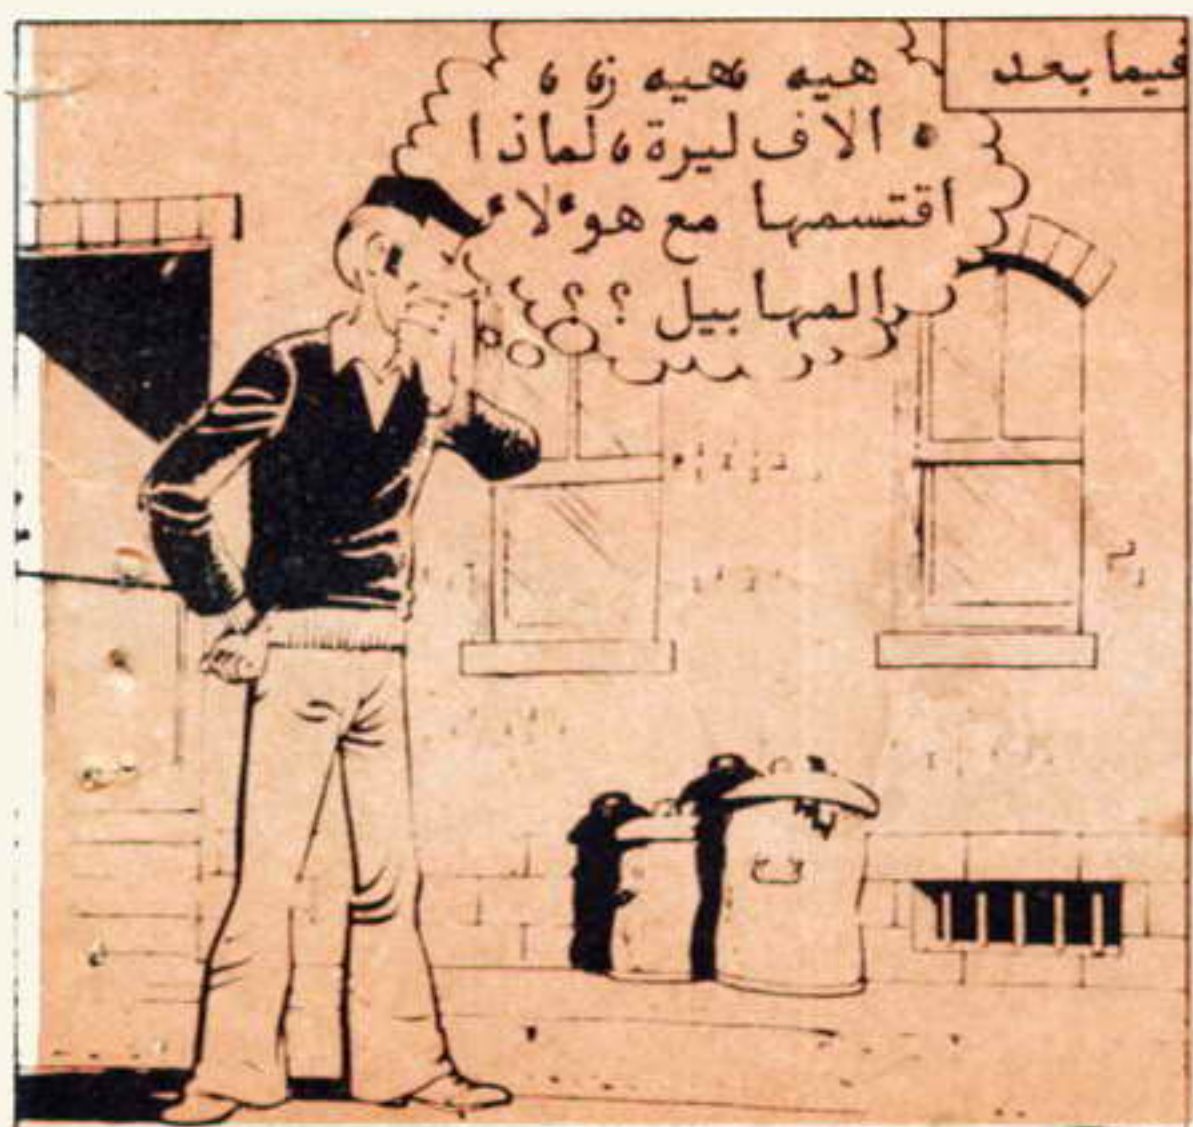 فيما بعد
هيه هيه
٥ الاف ليرة، لماذا
اقتسمها مع هوءلاء
المهابيل ؟؟